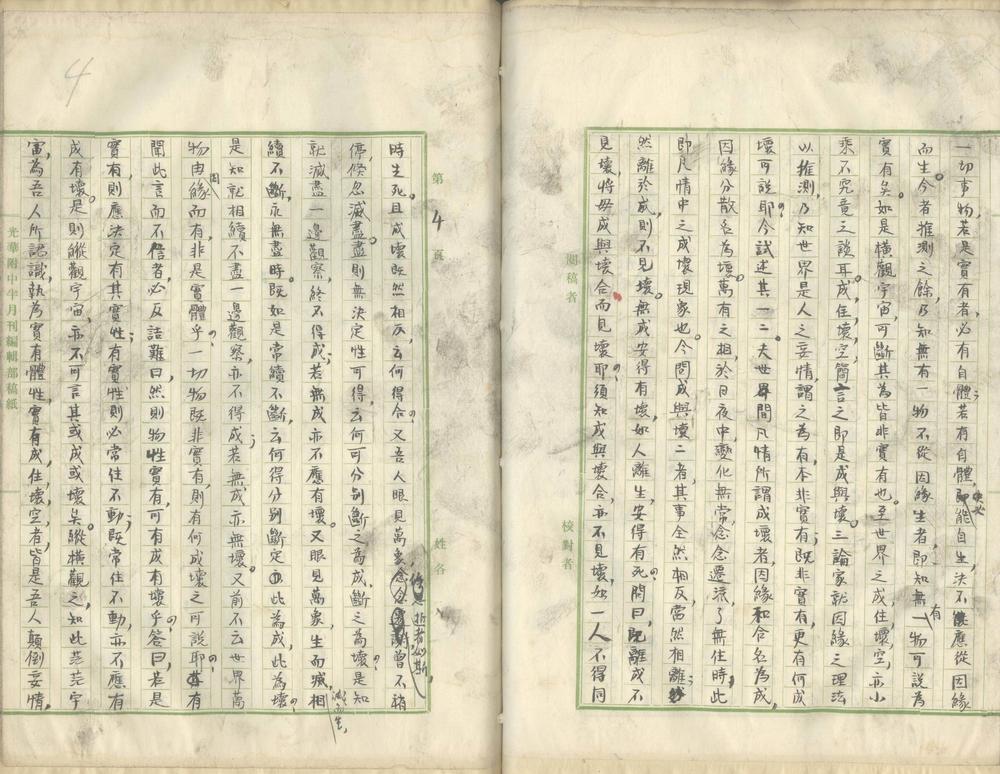 一切事物，若是實有者，必有自體；若有自體，決必能自生，決不應從因緣
而生。今者推測之餘，乃知無有一物不從因緣生者；即知無有一物可說為
實有矣。如是橫觀宇宙，可斷其為皆非實有也。至世界之成住壞空，亦小
乘不究竟之談耳。成住壞空，簡言之即是成與壞。三論家就因緣之理法
以推測，乃知世界是人之妄情，謂之為有，本非實有；既非實有，更有何成
壞可說耶？今試述其一二。夫世界間凡情所謂成壞者，因緣和合名為成，
因緣分散名為壞。萬有之相，於日夜中，變化無常，念念遷流，了無住時；此
即凡情中之成壞現象也。今問成與壞二者，其事全然相反，當然相離；
然離於成，則不見壞。無成安得有壞，如人離生，安得有死？問曰，既離成不
見壞，將毋成與壞合而見壞耶？須知成與壞合，亦不見壞，如一人不得同
第 4 頁
姓名
閱稿者
校對者
4
時生死。且成壞既然相反，云何得合？又吾人眼見萬象，逝者如斯，曾不稍
停，倏忽滅盡。盡則無決定性可得，云何可分別斷之為成，斷之為壞？是知
就滅盡一邊觀察，終不得成；若無成亦不應有壞。又眼見萬象，生而滅，滅而生，相
續不斷，永無盡時。既如是常續不斷，云何得分別斷定此為成，此為壞？
是知就相續不盡一邊觀察，亦不得成；若無成亦無壞。又前不云世界萬
物由因緣而有，非是實體乎？一切物既非實有，則有何成壞之可說耶？有
聞此言而不信者，必反詰難曰，然則物性實有，可有成有壞乎？答曰，若是
實有，則應決定有其實性；有實性則必常住不動；既常住不動，亦不應有
成有壞。是則縱觀宇宙，亦不可言其或成或壞矣。縱橫觀之，知此茫茫宇
宙，為吾人所認識，執為實有體性，實有成，住，壞，空者，皆是吾人顛倒妄情，
光華附中半月刊編輯部稿紙